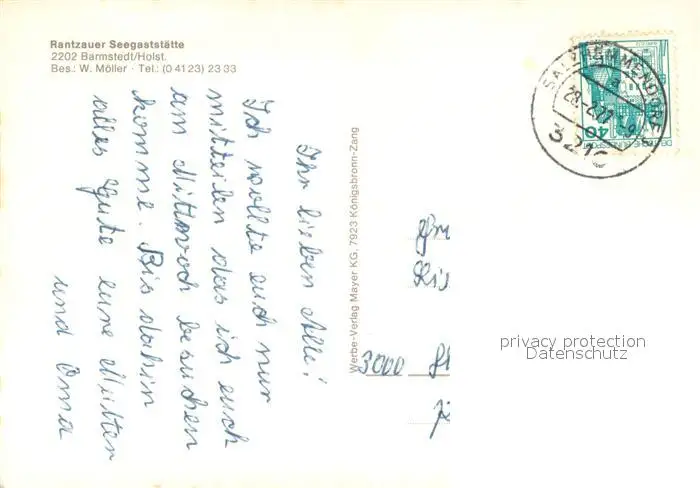 Rantzauer Seegaststätte
2202 Barmstedt/Holst.
Bes.: W. Möller · Tel.: (0 41 23) 23 33
Ihr lieben Alle!
Ich wollte euch nur
mitteilen das ich euch
am Mittwoch besuchen
komme. Bis dahin
alles Gute eure Mutter
und Oma
Werbe-Verlag Mayer KG, 7923 Königsbronn-Zang
SALZHEMMENDORF
a
28.-2.77.-9
3216
40
DEUTSCHE BUNDESPOST
3000
privacy protection
Datenschutz